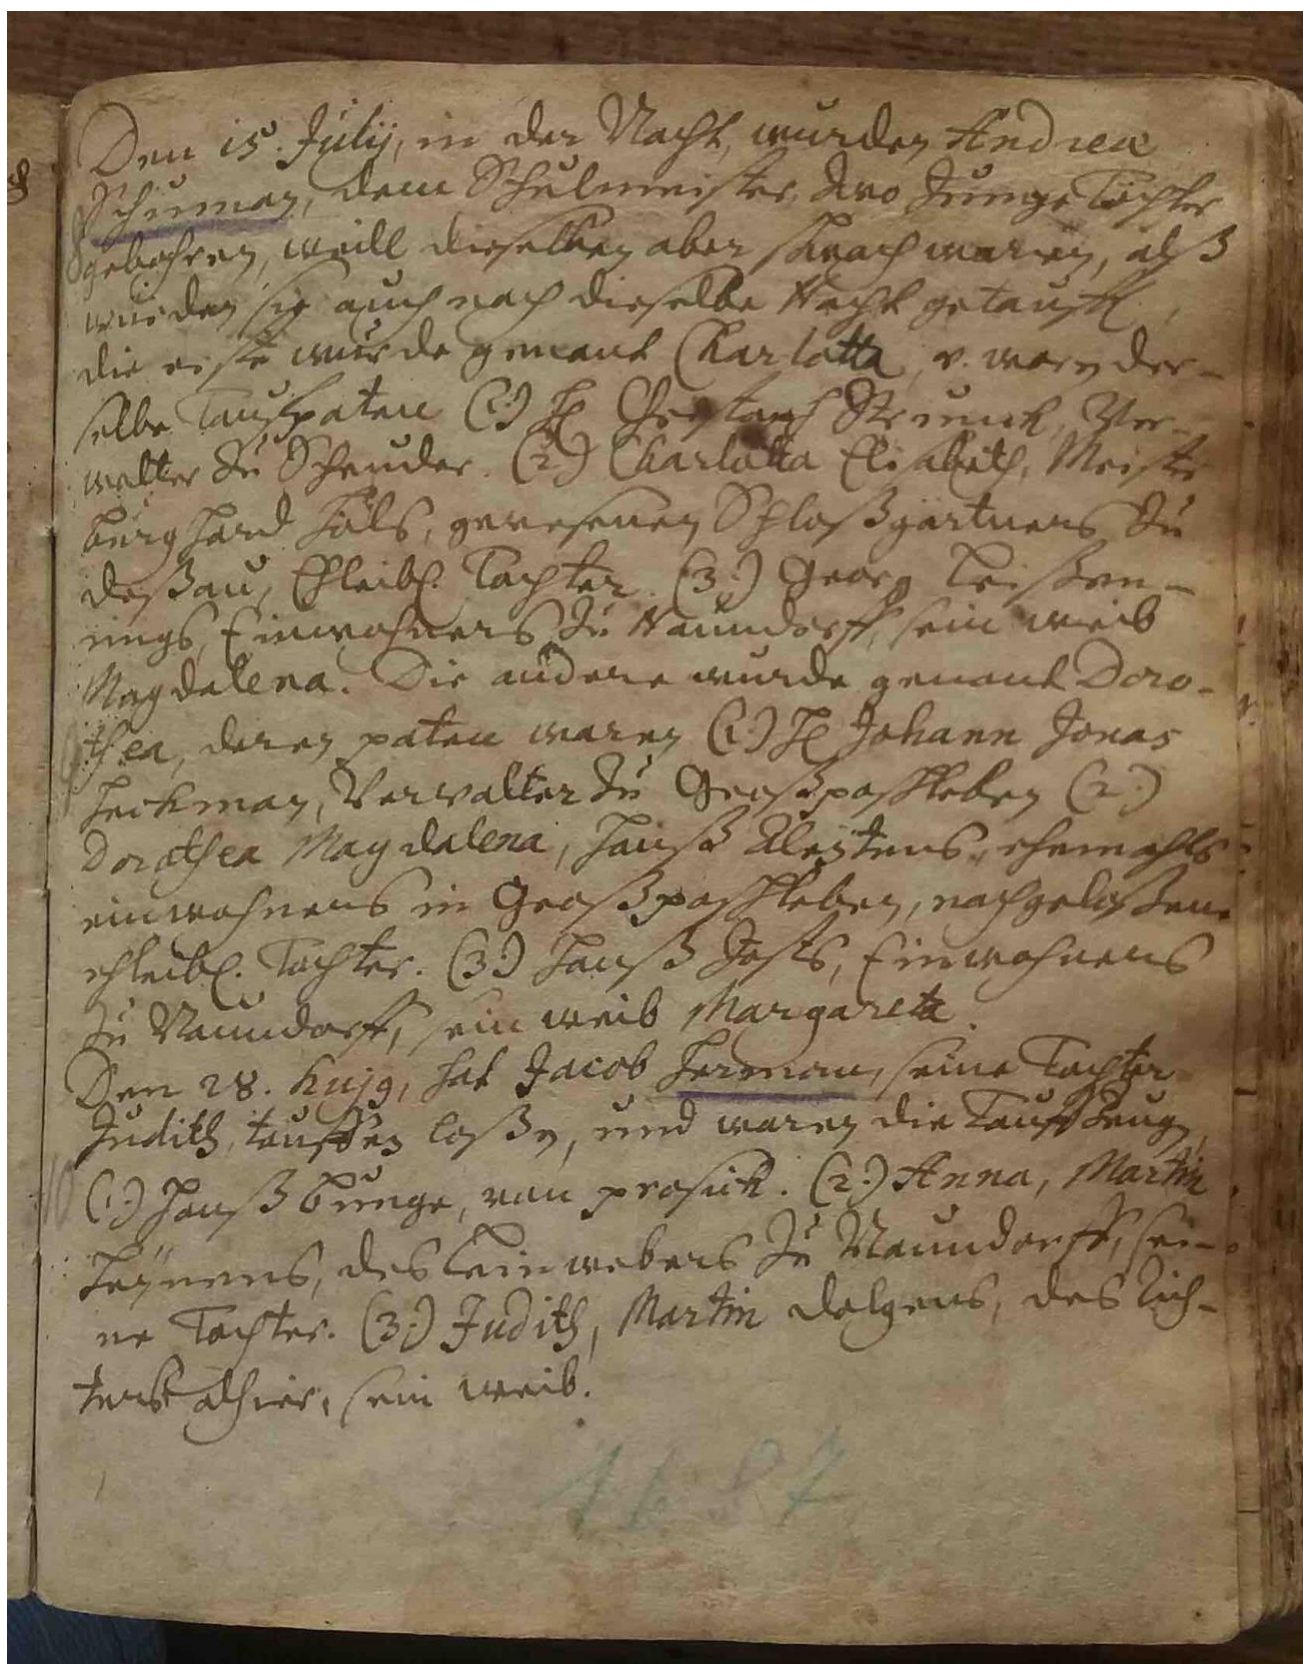 Den 15. Julij, in der Nacht, wurden Andreæ
Schuman, dem Schulmeister, zwo Junge Töchter
8 gebohren, weill dieselben aber schwach waren, alß
wurden sie auch noch dieselbe Nacht getaufft,
die erste wurde genant Charlotta, v. waren der-
selbe Taufpaten (1.) H Christoph Strunck, Ver-
walter zu Scheuder. (2.) Charlotta Elisabeth, Meister
burghard gewesenen Schloßgärtners zu
deßau, Ehleibl. Tochter. (3.) Georg
nings, Einwohners zu Naundorff, sein weib
Magdalena. Die andere wurde genant Doro-
9 thea, deren paten waren (1.) H Johann Jonas
Heckman, Verwalter zu Großpaschleben (2.)
Dorothea Magdalena, Hanß ehemahls
einwohners in Großpaschleben, nachgelaßene
ehleibl. Tochter. (3.) Hanß Josts, Einwohners
zu Naundorff, sein weib Margareta.
Den 28. hujg, hat Jacob Herman, seine Tochter
Judith, tauffen laßen, und waren die Tauffzeugen,
10 (1.) Hanß Bunge, von prosick. (2.) Anna, Martin
Heÿnens, des Leinwebers zu Naundorff, sei-
ne Tochter. (3.) Judith, Martin dalgens, des Rich-
ters alhier, sein weib.
1687